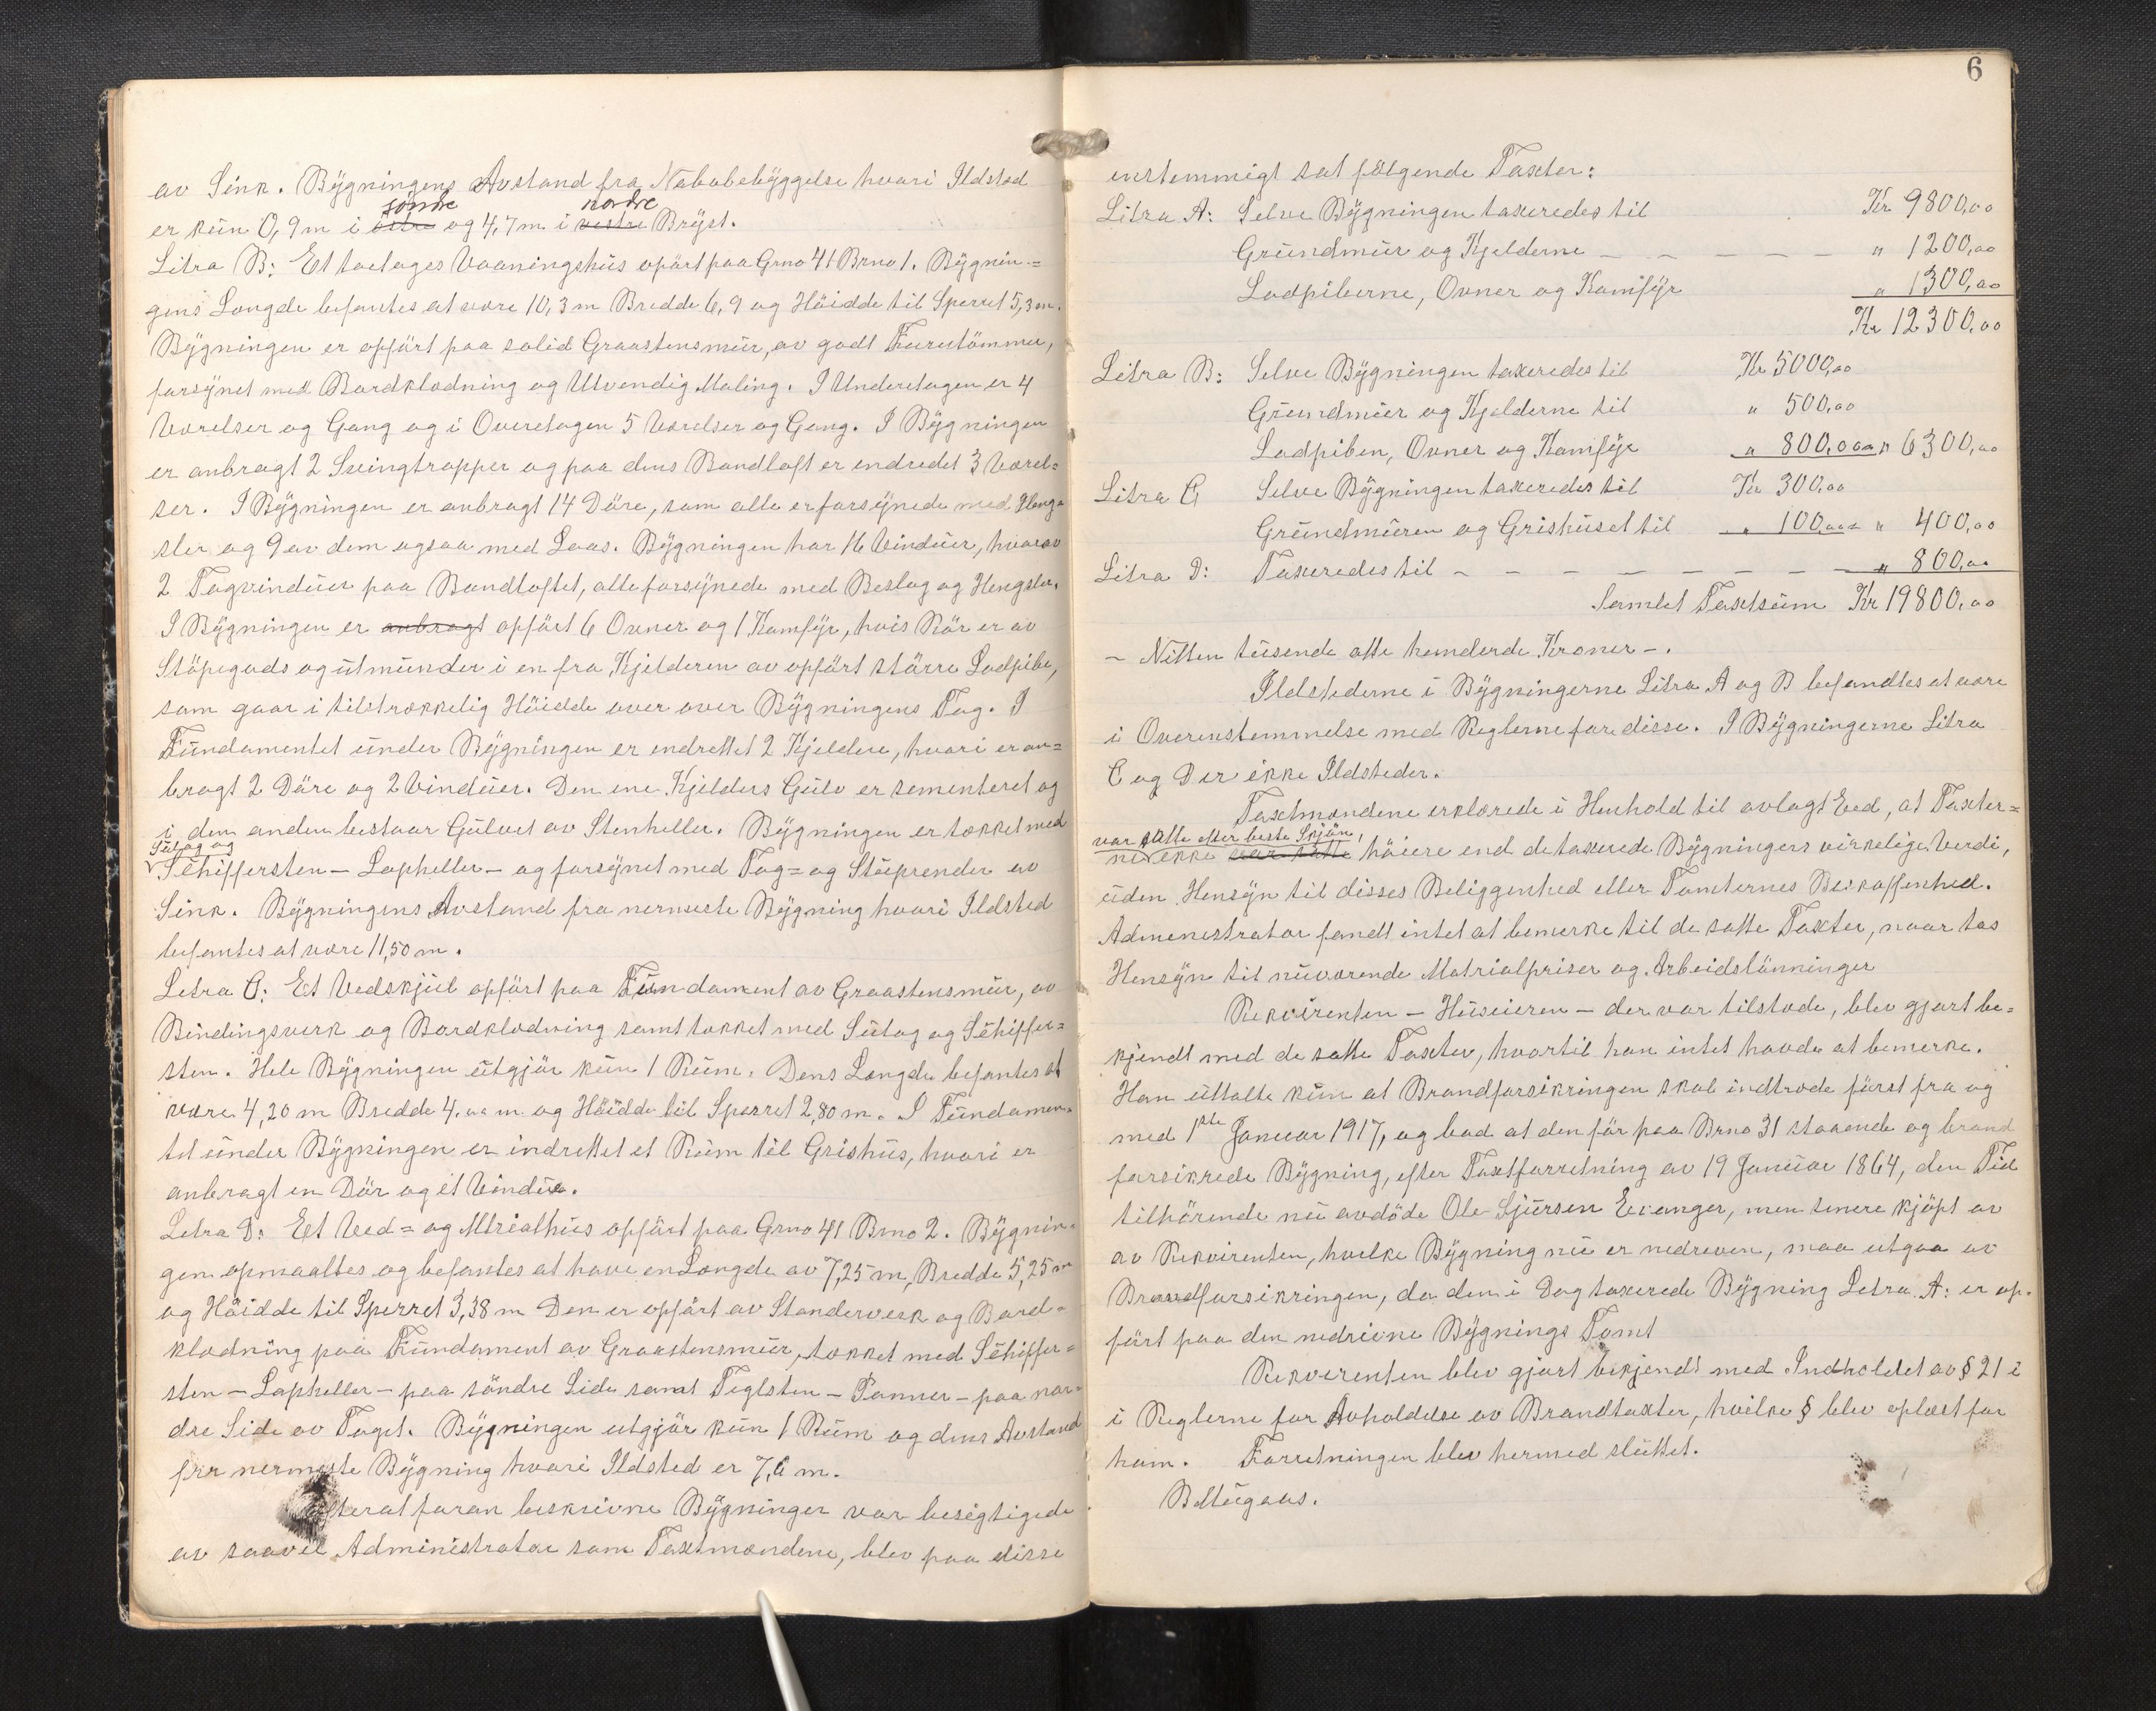 av Sink. Bygningens Avstand fra Nabobebyggelse hvori Ildsted
søndre nordre
er kun 0,9 m i østre og 4,7 m i vestre Bryst.
Litra B: Et toetages Vaaningshus opført paa Grno 41 Brno 1. Bygnin-
gens Længde befantes at være 10,3 m Bredde 6,9 og Høidde til Sperret 5,3 m.
Bygningen er opført paa solid Graastensmur, av godt Furutømmer,
forsynet med Bordklædning og Utvendig Maling. I Underetagen er 4
Værelser og Gang og i Overetagen 5 Værelser og Gang. I Bygningen
er anbragt 2 Svingtrapper og paa dens Bandloft er endredet 3 Værel=
ser. I Bygningen er anbragt 14 Døre, som alle er forsynede med Heng=
sler og 9 av dem ogsaa med Laas. Bygningen har 16 Vinduer, hvorav
2 Tagvinduer paa Bandloftet, alle forsynede med Beslag og Hengsler.
I Bygningen er anbragt opført 6 Ovner og 1 Komfyr, hvis Rør er av
Støpegods og utmunder i en fra Kjelderen av opført større Lodpibe,
som gaar i tilstrækkelig Høidde over over Bygningens Tag. I
Fundamentet under Bygningen er endrettet 2 Kjeldere, hvori er an=
bragt 2 Døre og 2 Vinduer. Den ene Kjelders Gulv er sementeret og
i den anden bestaar Gulvet av Stenheller. Bygningen er tækket med
Sutag og
Schiffersten - Lapheller - og forsynet med Tag= og Stuprender av
Sink. Bygningens Avstand fra nermeste Bygning hvori Ildsted
befantes at være 11,50 m.
Letra C: Et Vedskjul opført paa Fundament av Graastensmur, av
Bindingsverk og Bordklædning samt tækket med Sutag og Schiffer=
sten. Hele Bygningen utgjør kun 1 Rum. Dens Længde befantes at
være 4,20 m Bredde 4,00 m. og Høidde til Sperret 2,80 m. I Fundamen=
tet under Bygningen er indrettet et Rum til Grishus, hvori er
anbragt en Dør og et Vindue.
Letra D: Et Ved= og Mtrialhus opført paa Grno 41 Brno 2. Bygnin=
gen opmaaltes og befantes at have en Længde av 7,25 m, Bredde 5,25 m
og Høidde til Sperret 3,38 m Den er opført av Standerverk og Bord=
klædning paa Fundament av Graastensmur, tækket med Schiffer=
sten - Lapheller - paa søndre Side samt Teglsten - Panner - paa nor=
dre Side av Taget. Bygningen utgjør kun 1 Rum og dens Avstand
fra nermeste Bygning hvori Ildsted er 7,6 m.
Efterat foran beskrivne Bygninger var besigtigede
av saavel Administrator som Taxtmændene, blev paa disse
6
enstemmigt sat følgende Taxter:
Litra A: Selve Bygningen taxeredes til Kr 9800,00
Grundmur og Kjelderne - - - - - " 1200,00
Lodpiberne, Ovner og Komfyr " 1300,00
Kr 12300,00
Litra B: Selve Bygningen taxeredes til Kr 5000,00
Grundmur og Kjelderne til " 500,00
Lodpiben, Ovner og Komfyr " 800,00 = " 6300,00
Litra C Selve Bygningen taxeredes til Kr 300,00
Grundmuren og Grishuset til " 100,00 = " 400,00
Litra D: Taxeredes til - - - - - - - - " 800,00
Samlet Taxtsum Kr 19800,00
- Nitten tusende otte hunderde Kroner -.
Ildstederne i Bygningerne Litra A og B befandtes at være
i Overenstemmelse med Reglerne for disse. I Bygningerne Litra
C og D er ikke Ildsteder.
Taxtmændene erklærede i Henhold til avlagt Eed, at Taxter=
var satte efter beste Skjøn,
ne ikke var satte høiere end de taxerede Bygningers virkelige Verdi,
uden Hensyn til disses Beliggenhed eller Tomternes Beskaffenhed.
Admenestrator fandt intet at bemerke til de satte Taxter, naar tas
Hensyn til nuværende Matrialpriser og Arbeidslønninger
Rekvirenten - Huseieren - der var tilstede, blev gjort be=
kjendt med de satte Taxter, hvortil han intet havde at bemerke.
Han uttalte kun at Brandforsikringen skal indtræde først fra og
med 1ste Januar 1917, og bad at den før paa Brno 31 staaende og brand
forsikrede Bygning, efter Taxtforretning av 19 Januar 1864, den Tid
tilhørende nu avdøde Ole Sjursen Evanger, men senere kjøpt av
av Rekvirenten, hvelke Bygning nu er nedreven, maa utgaa av
Brandforsikringen, da den i Dag taxerede Bygning Letra A: er op=
ført paa den nedrivne Bygnings Tomt
Rekverenten blev gjort bekjendt med Indholdet av § 21 i
i Reglerne for Avholdelse av Brandtaxter, hvilke § blev oplæst for
ham. Forretningen blev hermed sluttet.
Bolstugaas.